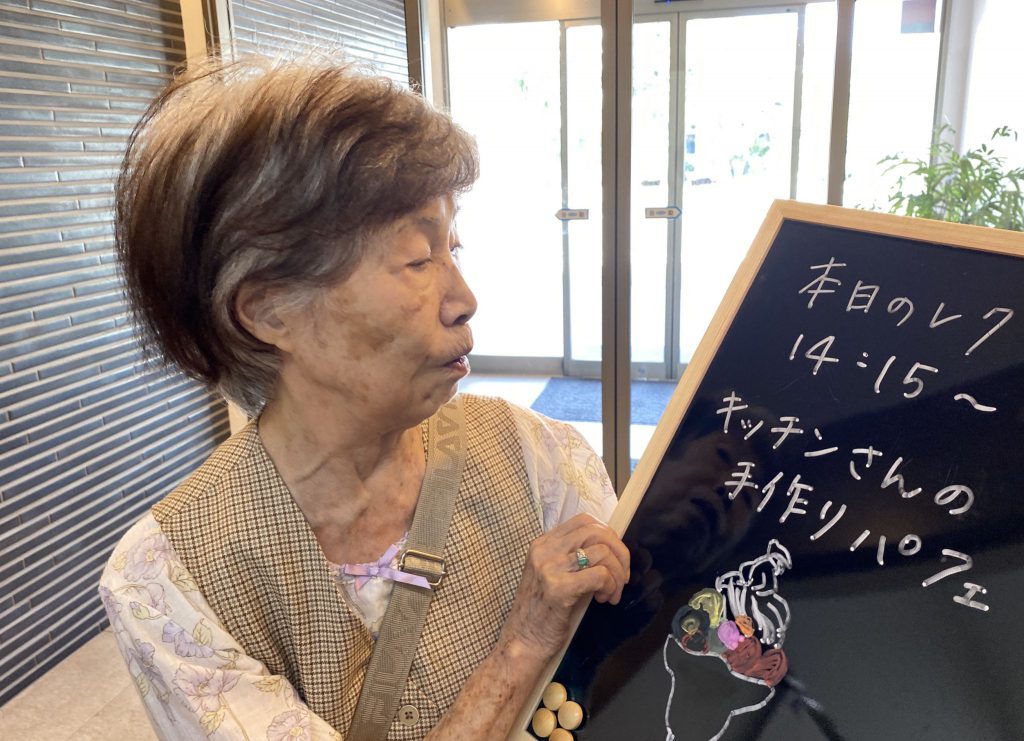 本日のレク
14:15～
キッチンさんの
手作りパフェ